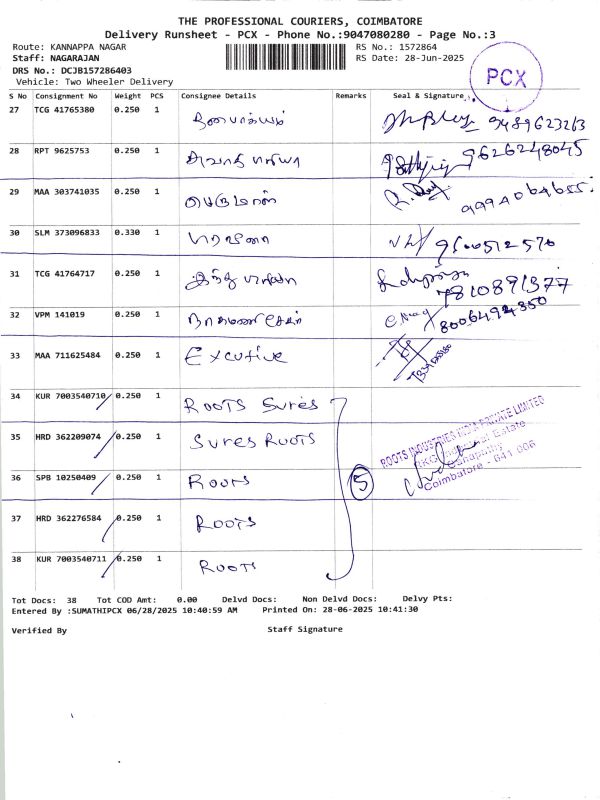 THE PROFESSIONAL COURIERS, COIMBATORE
Delivery Runsheet - PCX - Phone No.:9047080280 - Page No.:3
Route: KANNAPPA NAGAR RS No.: 1572864
Staff: NAGARAJAN RS Date: 28-Jun-2025
DRS No.: DCJB157286403
Vehicle: Two Wheeler Delivery
PCX
S No Consignment No Weight PCS Consignee Details Remarks Seal & Signature
27 TCG 41765380 0.250 1 9489623263
28 RPT 9625753 0.250 1 9626248045
29 MAA 303741035 0.250 1 பெருமாள் 9994064655
30 SLM 373096833 0.330 1 9500512570
31 TCG 41764717 0.250 1 7810891377
32 VPM 141019 0.250 1 8006494350
33 MAA 711625484 0.250 1 Executive
34 KUR 7003540710 0.250 1 ROOTS Sures
35 HRD 362209074 0.250 1 Sures ROOTS
ROOTS INDUSTRIES INDIA PRIVATE LIMITED
36 SPB 10250409 0.250 1 Roots 5
Coimbatore - 641 006
37 HRD 362276584 0.250 1 ROOTS
38 KUR 7003540711 0.250 1 ROOTS
Tot Docs: 38 Tot COD Amt: 0.00 Delvd Docs: Non Delvd Docs: Delvy Pts:
Entered By :SUMATHIPCX 06/28/2025 10:40:59 AM Printed On: 28-06-2025 10:41:30
Verified By Staff Signature